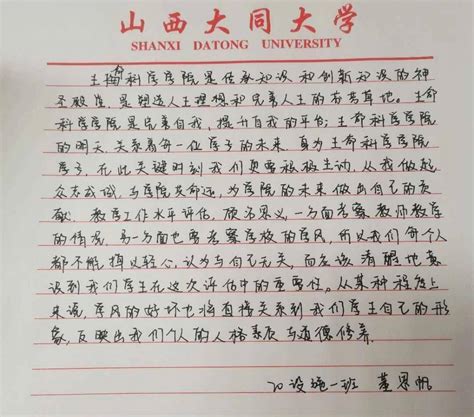 山西大同大学
SHANXI DATONG UNIVERSITY
生命科学学院是传承知识和创新知识的神
圣殿堂，是塑造人生理想和完善人生的夯实基地。生命
科学学院是完善自我、提升自我的平台；生命科学学院
的明天，关系着每一位学子的未来，身为生命科学学院
学子，在此关键时刻我们更要积极主动，从我做起
众志成城，与学院共命运，为学院的未来做出自己的贡
献。教学工作水平评估，顾名思义，一方面考察教师教学
的情况，另一方面也要考察学校的学风，所以我们每个人
都不能掉以轻心，认为与自己无关，而应该清醒地意
识到我们学生在这次评估中的重要性。从某种程度上
来说，学风的好坏也将直接关系到我们学生自己的形
象，反映出我们个人的人格素质与道德修养。
20设施一班 董思帆